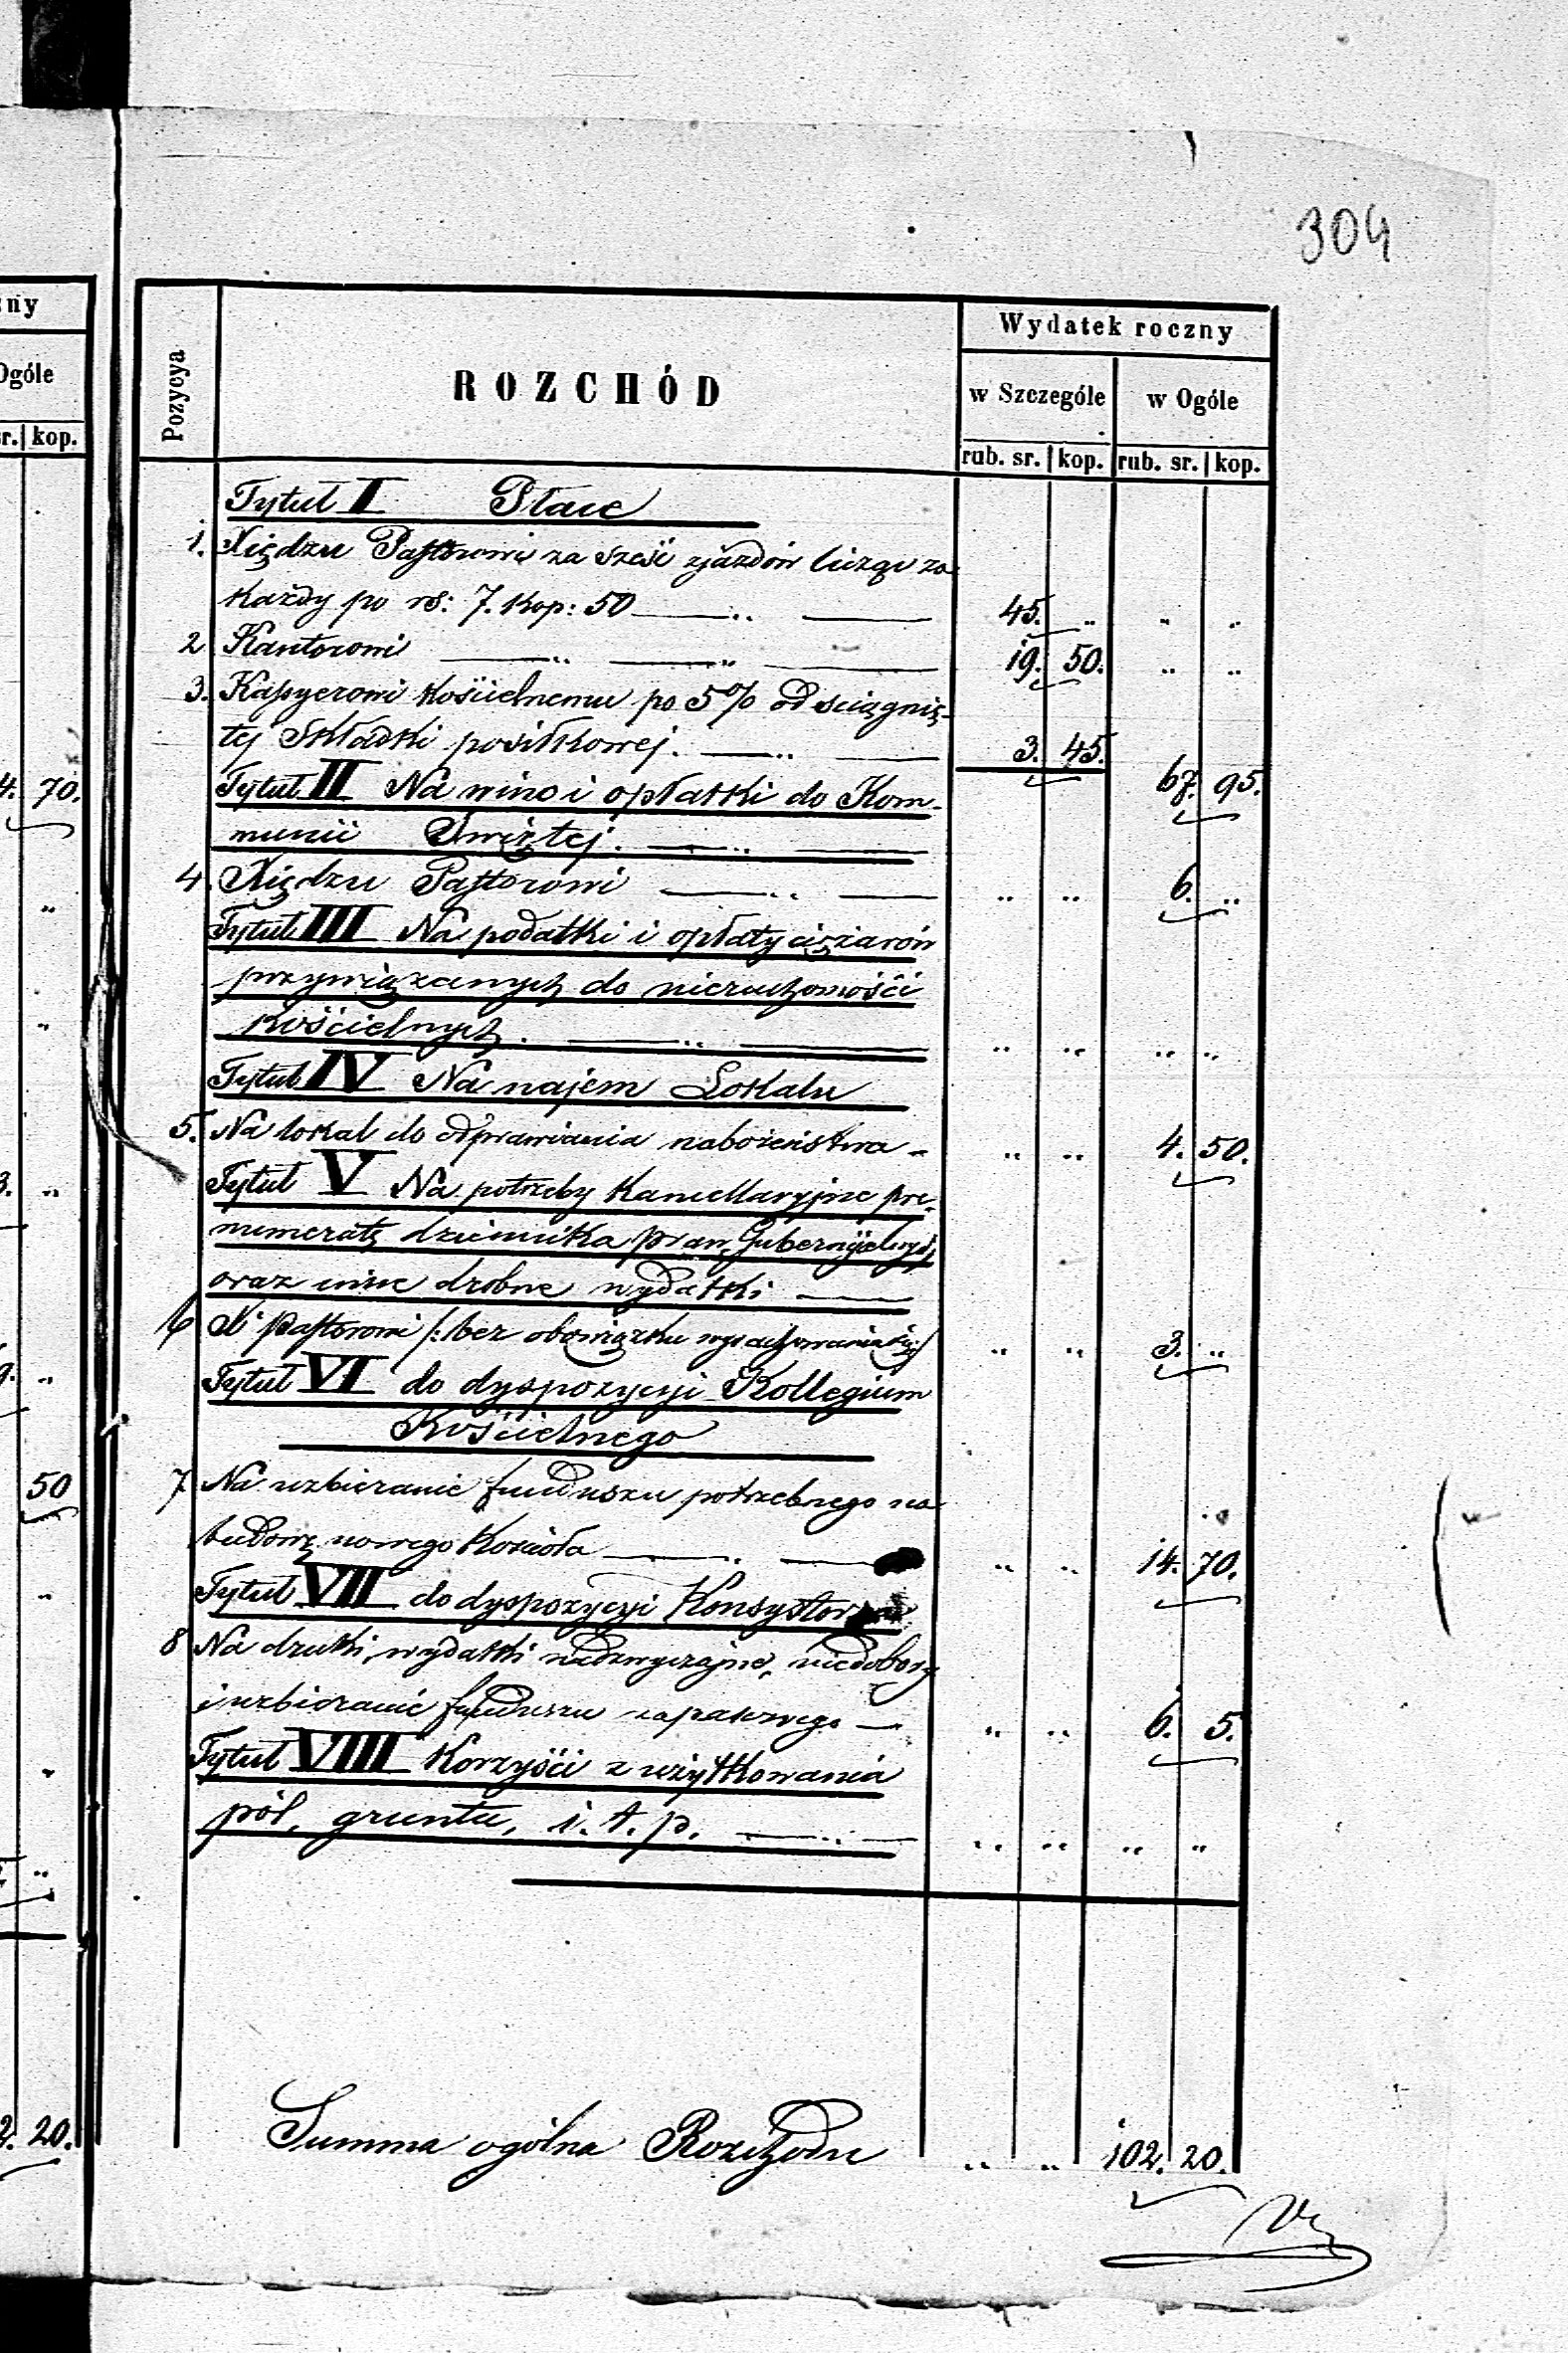 304
zny
Ogóle
sr. kop.
4. 70.
50
2. 20.
Pozycya
ROZCHÓD
Wydatek roczny
w Szczególe w Ogóle
rub. sr. kop. rub. sr. kop.
Tytuł I Płace
1. Xiędzu Pastorowi za sześć zjazdów licząc za
każdy po rs: 7. kop: 50 45. „ „ „
2 Kantorowi 19. 50. „ „
3. Kassyerowi kościelnemu po 5% od ściągnię-
tej składki posiłkowej. 3. 45. 67. 95.
Tytuł II Na wino i opłatki do Kom-
munii Swiętej.
4. Xiędzu Pastorowi „ „ 6. „
Tytuł III Na podatki i opłaty ciężarów
przywiązanych do nieruchomości
kościelnych. „ „ „ „
Tytuł IV Na najem Lokalu
5. Na lokal do odprawiania nabożeństwa - „ „ 4. 50.
Tytuł V Na potrzeby kancellaryjne pre-
numeratę dziennika praw, Gubernijalnych
oraz inne drobne wydatki
6 X. Pastorowi /: bez obowiązku „ „ 3. „
Tytuł VI do dyspozycyi Kollegium
Kościelnego
7 Na uzbieranie funduszu potrzebnego na
budowę nowego Kościoła „ „ 14. 70.
Tytuł VII do dyspozycyi Konsystorza
8 Na druki, wydatki nadzwyczajne, niedobory
i uzbieranie funduszu zapasowego „ „ 6. 5.
Tytuł VIII Korzyści z użytkowania
pól, gruntu, i. t. p. „ „ „ „
Summa ogólna Rozchodu „ „ 102. 20.